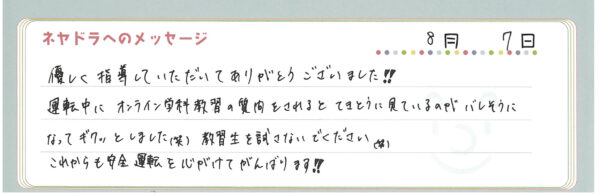 ネヤドラへのメッセージ
8月 7日
優しく指導していただいてありがとうございました!!
運転中にオンライン学科教習の質問をされるとてきとうに見ているのがバレそうに
なってギクッとしました(笑) 教習生を試さないでください(笑)
これからも安全運転を心がけてがんばります!!